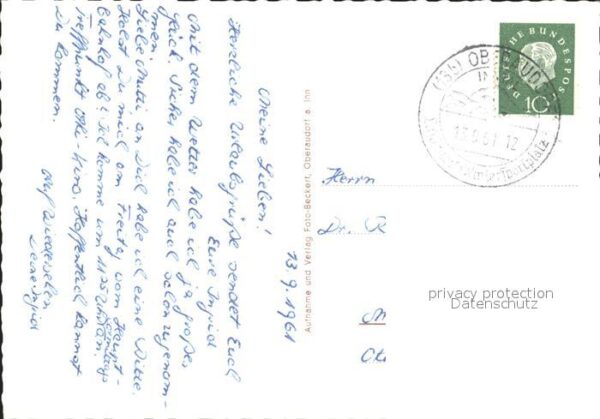 13.9.1961
Meine Lieben!
Herzliche Urlaubsgrüße sendet Euch
Eure Ingrid
Mit dem Wetter habe ich ja großes
Glück. Sicher habe ich auch schon zugenom-
men.
Liebe Mutti, an Dich habe ich eine Bitte.
Holst Du mich am Freitag vom Haupt-
bahnhof ab? Ich komme um 1125 Uhr an.
Treffpunkt Aki-Kino. Hoffentlich kannst
Du kommen.
Auf Wiedersehen
Deine Ingrid
Aufnahme und Verlag Foto-Beckert, Oberaudorf a. Inn
DEUTSCHE BUNDESPOST
10
13.9.61-12
Herrn
Dr. R
M
privacy protection
Datenschutz